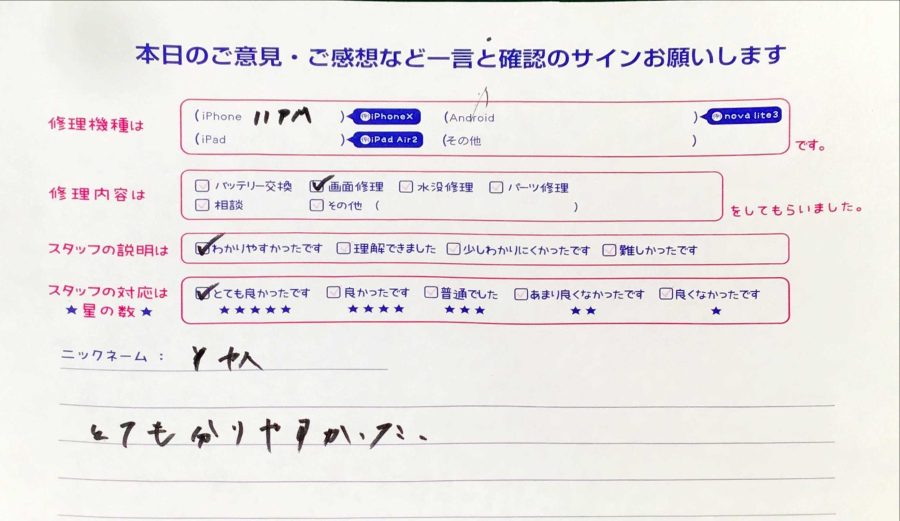 本日のご意見・ご感想など一言と確認のサインお願いします
修理機種は
(iPhone 11PM ) 例iPhoneX (Android ) 例nova lite3
(iPad ) 例iPad Air2 (その他 )
です。
修理内容は
バッテリー交換 ✓画面修理 水没修理 パーツ修理
相談 その他 ( )
をしてもらいました。
スタッフの説明は ✓わかりやすかったです 理解できました 少しわかりにくかったです 難しかったです
スタッフの対応は ✓とても良かったです 良かったです 普通でした あまり良くなかったです 良くなかったです
★星の数★ ★★★★★ ★★★★ ★★★ ★★ ★
ニックネーム：
とても分りやすかった..